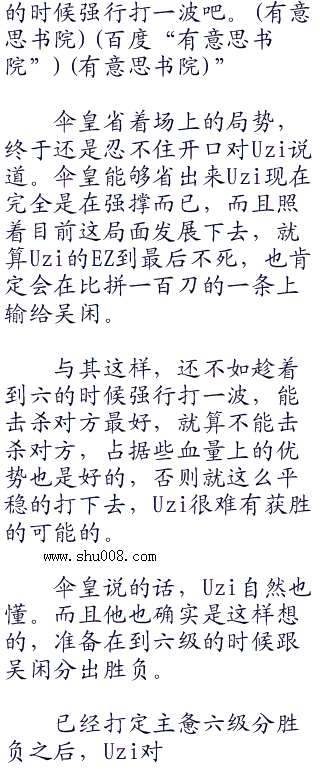 的时候强行打一波吧。(有意
思书院)(百度“有意思书
院”)(有意思书院)”
伞皇省着场上的局势，
终于还是忍不住开口对Uzi说
道。伞皇能够省出来Uzi现在
完全是在强撑而已，而且照
着目前这局面发展下去，就
算Uzi的EZ到最后不死，也肯
定会在比拼一百刀的一条上
输给吴闲。
与其这样，还不如趁着
到六的时候强行打一波，能
击杀对方最好，就算不能击
杀对方，占据些血量上的优
势也是好的，否则就这么平
稳的打下去，Uzi很难有获胜
的可能的。
www.shu008.com
伞皇说的话，Uzi自然也
懂。而且他也确实是这样想
的，准备在到六级的时候跟
吴闲分出胜负。
已经打定主惫六级分胜
负之后，Uzi对